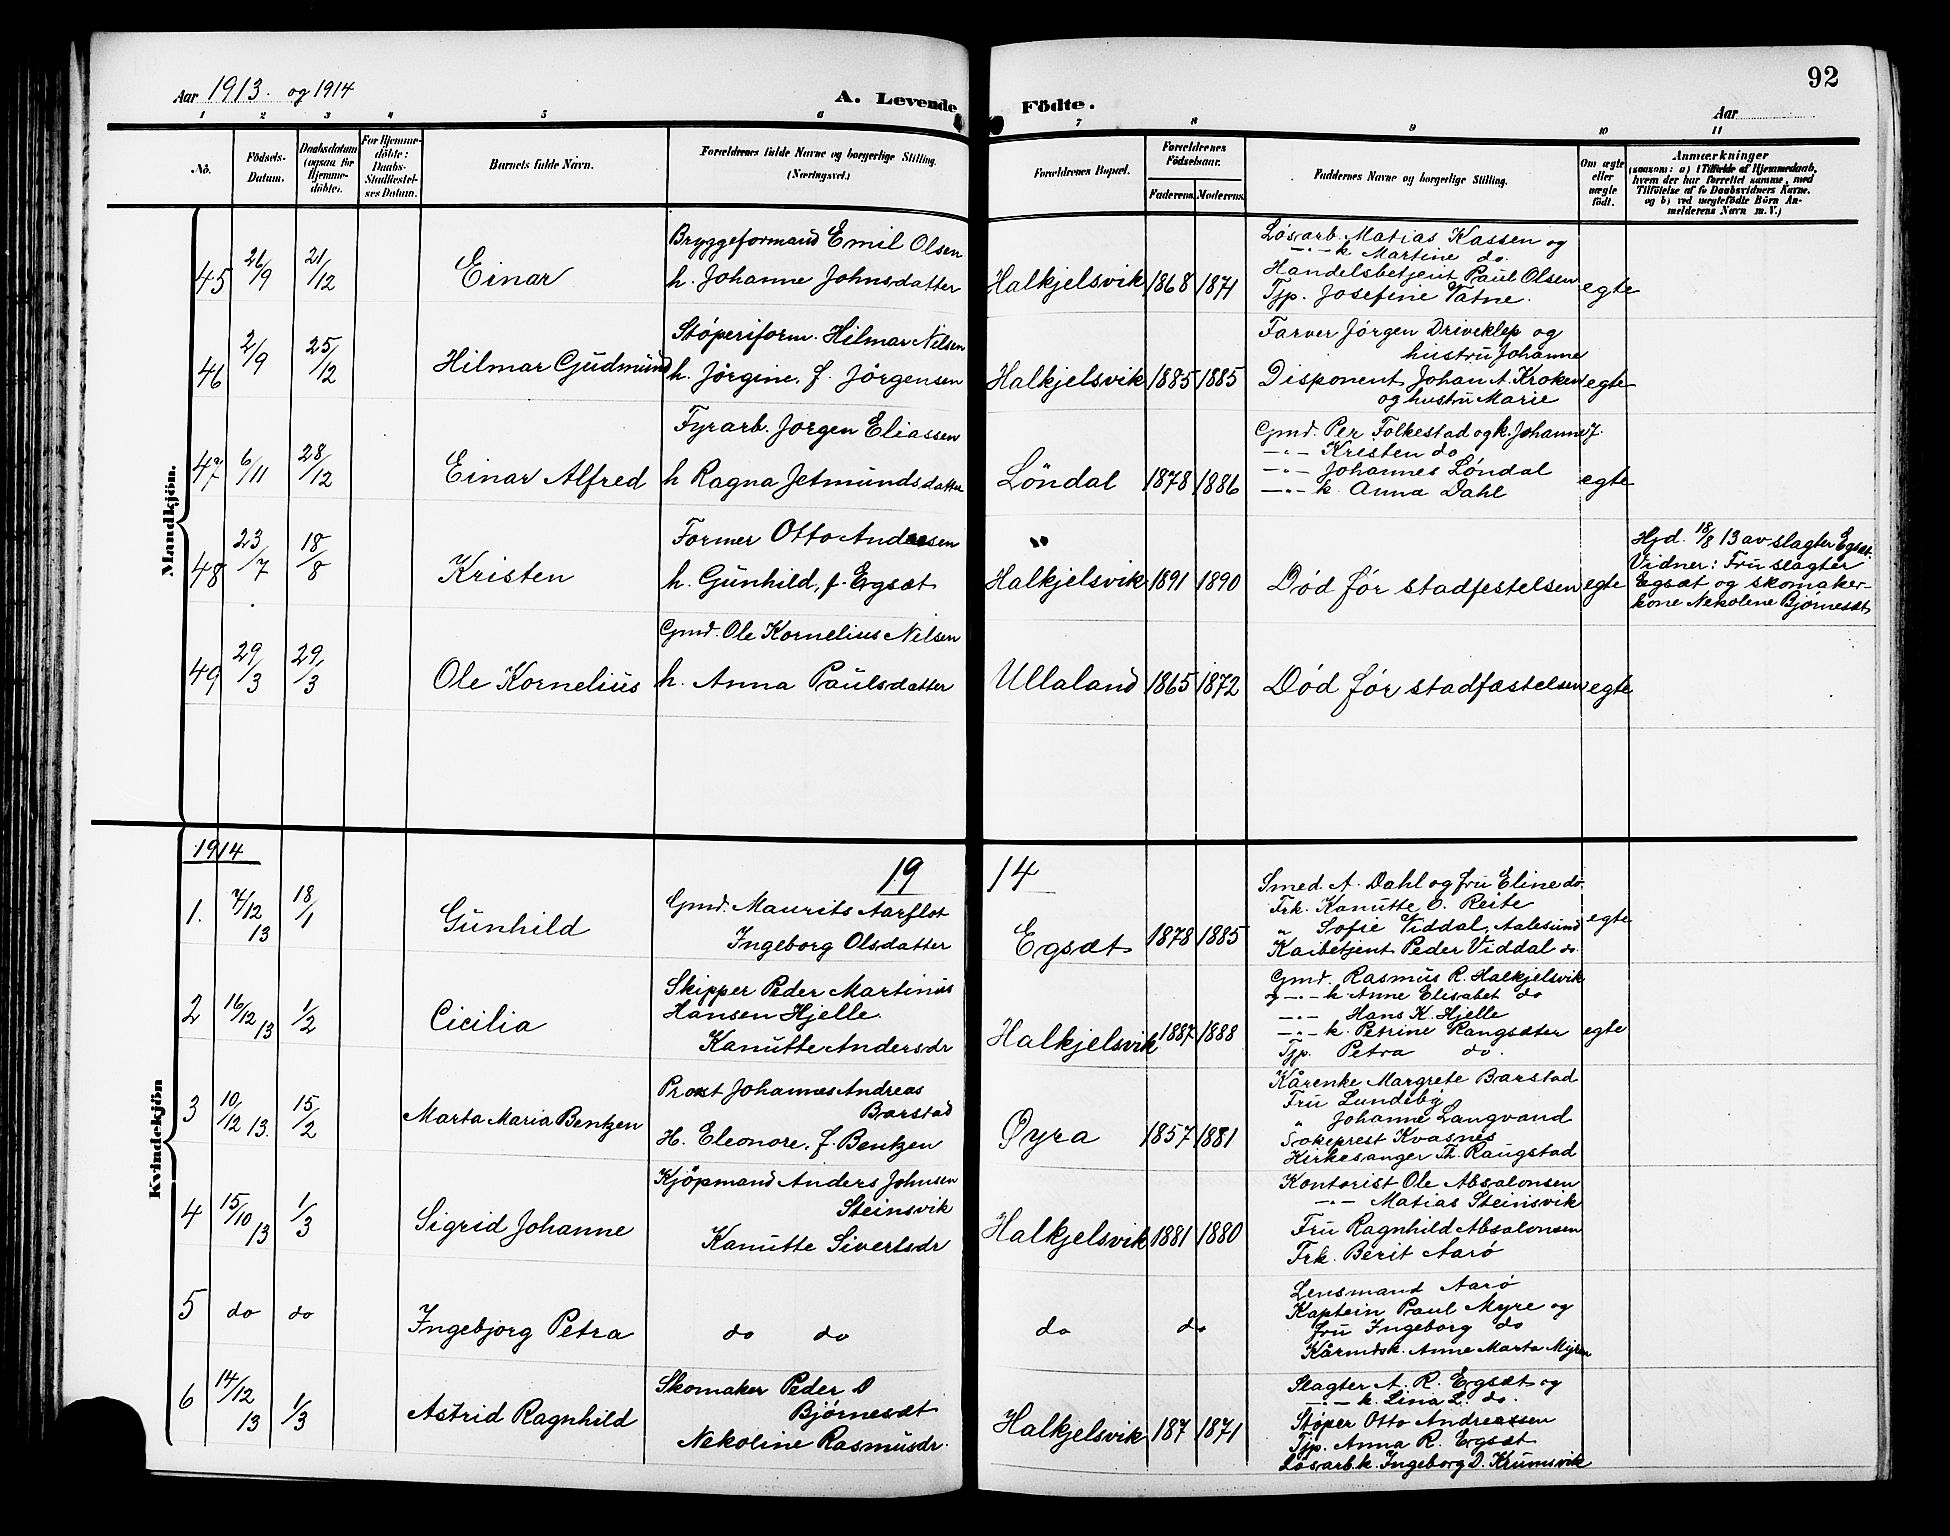 Aar 1913. og 1914
A. Levende Födte.
92
Aar
1 2 3 4 5 6 7 8 9 10 11
No.
Födsels-Datum.
Daabsdatum (ogsaa for Hjemme-döbte).
For Hjemme-döbte: Daabs-Stadfæstel-ses Datum.
Barnets fulde Navn.
Forældrenes fulde Navne og borgerlige Stilling. (Næringsvei.)
Forældrenes Bopæl.
Forældrenes Födselsaar.
Faderens. Moderens.
Faddernes Navne og borgerlige Stilling.
Om ægte eller uægte födt.
Anmærkninger
(saasom: a) i Tilfælde af Hjemmedaab, hvem der har forrettet samme, med Tilföielse af to Daabsvidners Navne, og b) ved uægtefödte Börn An-melderens Navn m. V.)
Mandkjön.
45 26/9 21/12 Einar
Bryggeformand Emil Olsen
h. Johanne Johnsdatter
Halkjelsvik 1868 1871
Løsarb. Matias Kassen og
—"— k Martine do.
Handelsbetjent Paul Olsen
Tjp. Josefine Vatne.
egte
46 2/9 25/12 Hilmar Gudmund
Støperiform. Hilmar Nilsen
h. Jörgine, f. Jörgensen
Halkjelsvik 1885 1885
Farver Jörgen Driveklep og
hustru Johanne
Disponent Johan A. Kroken
og hustru Marie
egte
47 6/11 28/12 Einar Alfred
Fyrarb. Jorgen Eliassen
h Ragna Jetmundsdatter
Löndal 1878 1886
Gmd. Per Folkestad og k. Johanne J.
—"— Kristen do
—"— Johannes Löndal
—"— k. Anna Dahl
egte
48 23/7 18/8 Kristen
Former Otto Andersen
h. Gunhild, f. Egsæt
"
Halkjelsvik 1891 1890
Död för stadfestelsen
egte
Hjd. 18/8 13 av slagter Egsæt.
Vidner: Fru slagter
Egsæt og skomaker-
kone Nekolene Bjørnesæt
49 29/3 29/3 Ole Kornelius
Gmd. Ole Kornelius Nilsen
h. Anna Paulsdatter
Ullaland 1865 1872
Död för stadfæstelsen
egte
Kvindekjön
1914
19 14
1. 7/12 13 18/1 Gunhild
Gmd. Maurits Aarflot
Ingeborg Olsdatter
Egsæt 1878 1885
Smed. A. Dahl og fru Eline do.
Frk. Kanutte O. Reite
" Sofie Viddal, Aalesund
Kaibetjent Peder Viddal do
egte
2 16/12 13 1/2 Cicilia
Skipper Peder Martinus
Hansen Hjelle.
Kanutte Andersdr
Halkjelsvik 1887 1888
Gmd. Rasmus R. Halkjelsvik
og —"— k Anne Elisabet do
—"— Hans K. Hjelle
—"— k. Petrine Rangsæter
Tjp. Petra do.
egte
3 10/12 13. 15/2 Marta Maria Bentzen
Prost Johannes Andreas
Barstad
H. Eleonore, f. Bentzen
Øyra 1857 1881
Kårenke Margrete Barstad
Fru Lundeby
" Johanne Langvand
Sokeprest Kvasnes
Kirkesanger Th. Raugstad
4 15/10 13 1/3 Sigrid Johanne
Kjöpmand Anders Johnsen
Steinsvik
Kanutte Sivertsdr
Halkjelsvik 1881 1880
Kontorist Ole Absalonsen
—"— Matias Steinsvik
Fru Ragnhild Absalonsen
Frk. Berit Aarø
5 do do Ingebjorg Petra
do do
do do
Lensmand Aarø
Kaptein Paul Myre og
fru Ingeborg do
Kårmdsk. Anne Marta Myren
6 14/12 13 1/3 Astrid Ragnhild
Skomaker Peder D
Bjørnesæt
Nekoline Rasmusdr.
Halkjelsvik 187 1871
Slagter A. R. Egsæt og
—"— k. Lina L. do.
Støper Otto Andreassen
Tjp. Anna R. Egsæt
Løsarb.k. Ingeborg D. Krumsvik